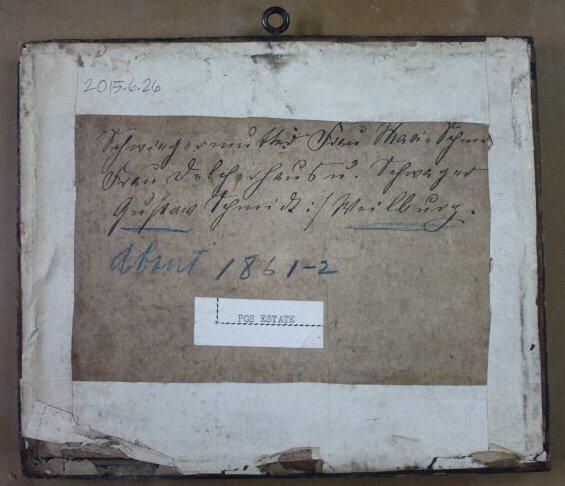 2015.6.26
Schwiegermutter Frau Marie Schmi
Frau Delcherhaus u. Schwager
Gustav Schmidt :/ Weilburg.
About 1861-2
POS ESTATE